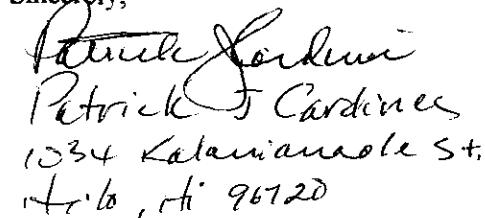 Sincerely,
Patrick J Cardines
Patrick J Cardines
1034 Kalanianaole St.
Hilo, Hi 96720